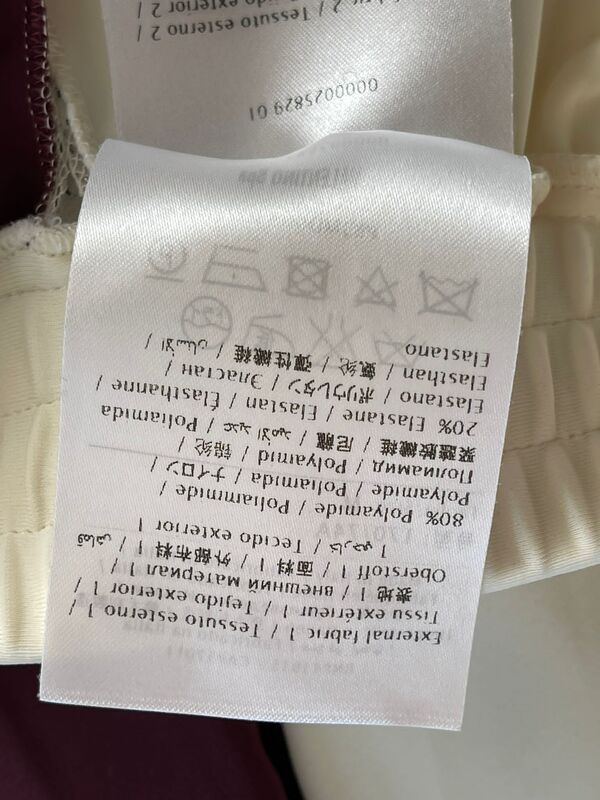 External fabric 1 / Tessuto esterno 1 /
Tissu extérieur 1 / Tejido exterior 1
表地 1 / внешний материал 1 /
Oberstoff 1 / 面料 1 / 外部布料 1 / قماش
خارجي 1 / Tecido exterior 1
80% Polyamide / Poliammide /
Polyamide / Poliamida / ナイロン /
Полиамид / Polyamid / 锦纶 /
聚醯胺纖維 / 尼龍 / عديد الأميد / Poliamida
20% Elastane / Elastan / Élasthanne /
Elastano / ポリウレタン / Эластан /
Elasthan / 氨纶 / 彈性纖維 / الأستان /
Elastano
0000025829 01
2 / Tessuto esterno 2 /
exterior 2 /